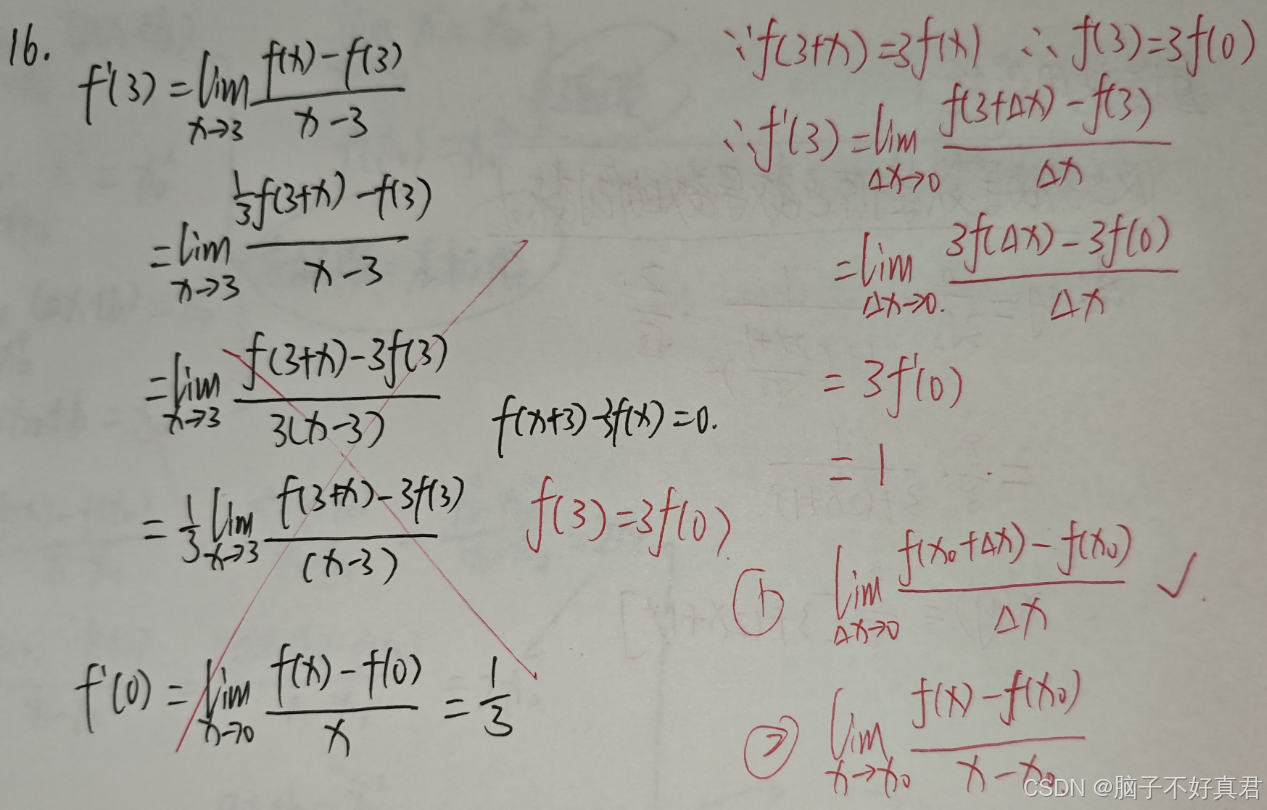 16.
f'(3) = lim_{x→3} \frac{f(x) - f(3)}{x - 3}
= lim_{x→3} \frac{\frac{1}{3}f(3+x) - f(3)}{x - 3}
= lim_{x→3} \frac{f(3+x) - 3f(3)}{3(x - 3)}
f(x+3) - 3f(x) = 0.
= \frac{1}{3} lim_{x→3} \frac{f(3+x) - 3f(3)}{(x - 3)}
f(3) = 3f(0)
f'(0) = lim_{x→0} \frac{f(x) - f(0)}{x} = \frac{1}{3}
∵ f(3+x) = 3f(x) ∴ f(3) = 3f(0)
∴ f'(3) = lim_{Δx→0} \frac{f(3+Δx) - f(3)}{Δx}
= lim_{Δx→0.} \frac{3f(Δx) - 3f(0)}{Δx}
= 3f'(0)
= 1
① lim_{Δx→0} \frac{f(x₀+Δx) - f(x₀)}{Δx} ✓.
② lim_{x→x₀} \frac{f(x) - f(x₀)}{x - x₀}
CSDN @脑子不好真君